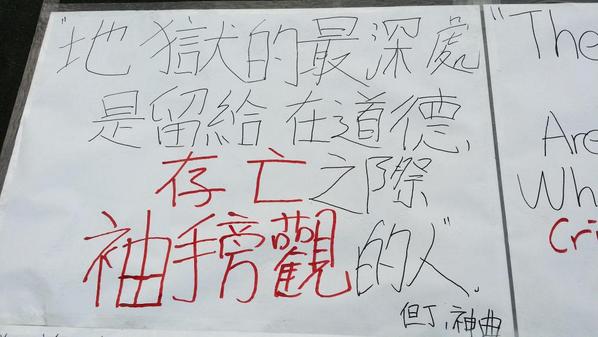 "地獄的最深處
是留給在道德
存亡之際
袖手旁觀的人".
但丁,神曲
"The
Are
Wh
Cri